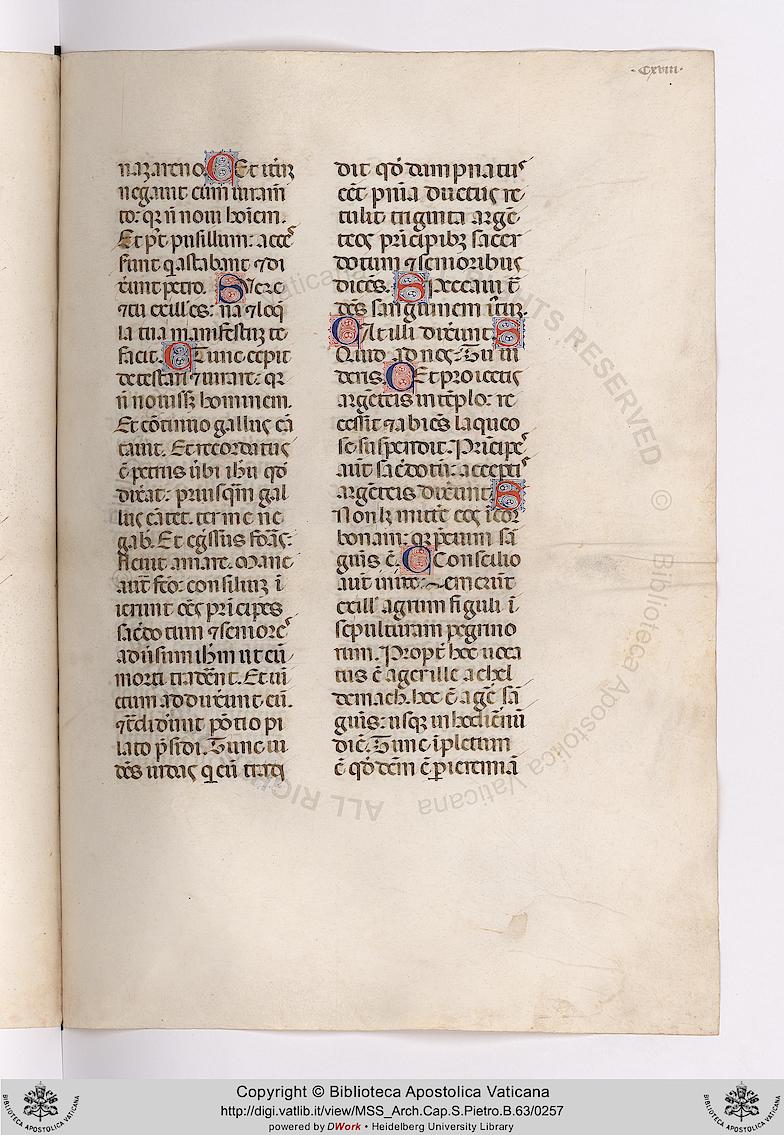 ·Cxviii·
nazareno. C Et itez̄
negauit cum iuram̄
to: qꝛ ñ noui hoīem.
Et pꝰt pusillum: acceˢ
serunt q̇ astabant ⁊ di
xerunt petro. S Uere
⁊ tu ex illis es: nã ⁊ loq̄
la tua manifestuz te
facit. C Tunc cepit
detestari ⁊ iurare: qꝛ
ñ nouissz hominem.
Et cōtinuo gallus cã
tauit. Et recordatus
ē petrus ūbi ihū qd̄
dixat: priusqm̃ gal
lus cãtet. ter me ne
gab̄. Et egr̄ssus foras:
fleuit amare. Mane
aut̄ fc̄o: consiliuz ī
ierunt oēs prīcipes
sac̄dotum ⁊ senioreˢ
aduīsum ihm̄ ut eū
morti trad̄ent. Et uī
ctum adduxerunt eū.
⁊ t̄did'unt pōtio pi
lato p̄sidi. Tunc ui
dēs iudas qi eū tradi
dit qd̄ dampnatuˢ
eēt pñia ductus re
tulit triginta argē
teos prīcipibꝫ sacer
dotum ⁊ senioribus
dicēs. S Peccaui t̄
dēs sanguinem iustꝫ.
C At illi dixerunt. S
Quid ad nos: Tu ui
deris. C Et proiectis
argēteis in tēplo: re
cessit ⁊ abiēs laqueo
se suspendit. Prīcipeˢ
aut̄ sac̄dotū: acceptiˢ
argēteis dixerunt. S
Non lꝫ mitt̄e eos ī cor
bonam: qꝛ p̄cium sã
guīs ē. C Consilio
aut̄ inito: emerūt
ex ill' agrum figuli ī
sepulturam pegrino
rum. Propt̄ hoc uoca
tus ē ager ille achel
demach. hoc ē aḡ sã
guīs: usqꝫ in hodiernū
diē. Tunc īpletum
ē qd̄ dc̄m ē p̱ ieremiã
Copyright © Biblioteca Apostolica Vaticana
http://digi.vatlib.it/view/MSS_Arch.Cap.S.Pietro.B.63/0257
powered by DWork • Heidelberg University Library
BIBLIOTECA APOSTOLICA VATICANA
BIBLIOTECA APOSTOLICA VATICANA
ALL RIGHTS RESERVED © Biblioteca Apostolica Vaticana